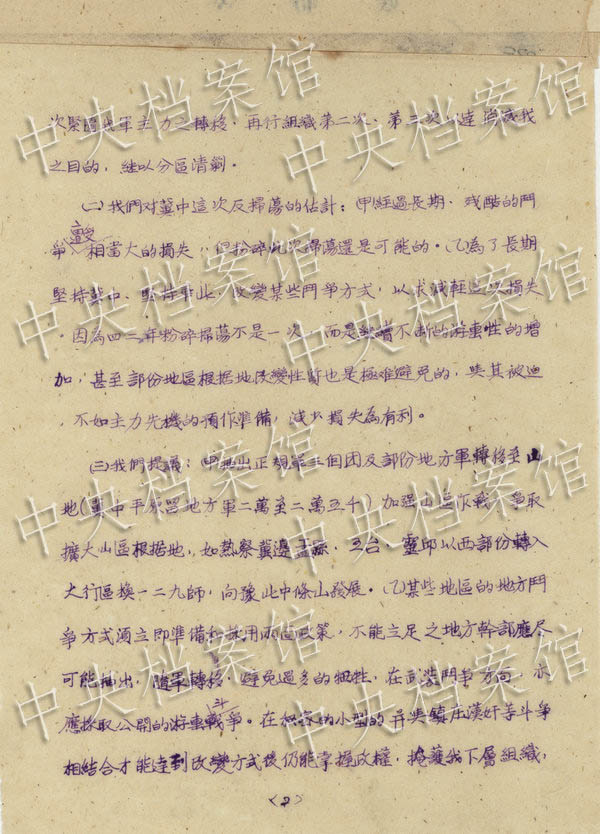 次緊區我軍主力之轉移，再行組織第二次、第三次以達消滅我
之目的，繼以分區清剿。
(二)我們对冀中這次反掃蕩的估計：(甲)經過長期、殘酷的鬥
爭遭受相當大的損失，但粉碎此次掃蕩還是可能的。(乙)為了長期
堅持冀中、堅持平北，改變某些鬥爭方式，以求減輕這次損失
。因為四二年粉碎掃蕩不是一次，而是繼續不斷的嚴重性的增
加，甚至部份地區根據地改變性質也是極难避免的，與其被迫
，不如主力先機的預作準備，減少損失為有利。
(三)我們提議：(甲)抽出正規軍三個團及部份地方軍轉移至山
地(冀中平原留地方軍二萬至二萬五千)加强山區作戰，爭取
擴大山區根據地，如熱察冀邊、五台，靈邱以西部份轉入
太行區換一二九師，向豫北中條山發展。(乙)某些地區的地方鬥
爭方式須立即準備和採用兩面政策，不能立足之地方幹部應尽
可能抽出，隨軍轉移，避免過多的牺牲，在武裝鬥爭方向，亦
應採取公開的游擊戰斗爭。在的小型的與鎮压漢奸等斗爭
相結合才能達到改變方式後仍能掌握政權，掩護我下層組織，
<2>
中央档案馆
中央档案馆
中央档案馆
中央档案馆
中央档案馆
中央档案馆
中央档案馆
中央档案馆